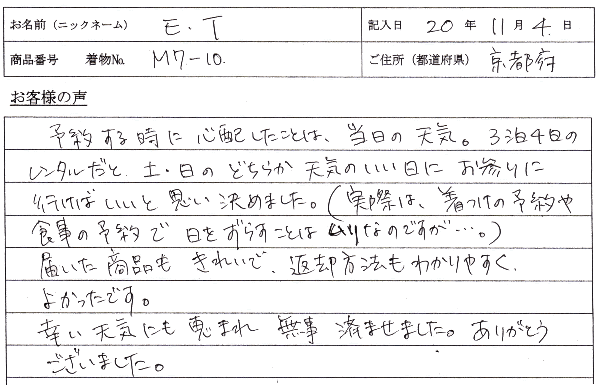 お名前（ニックネーム） E.T 記入日 20年 11月 4日
商品番号 着物No. M7-10. ご住所（都道府県） 京都府
お客様の声
予約する時に心配したことは、当日の天気。3泊4日の
レンタルだと、土・日のどちらか天気のいい日にお参りに
行けばいいと思い決めました。（実際は、着つけの予約や
食事の予約で日をずらすことはムリなのですが…。）
届いた商品もきれいで、返却方法もわかりやすく、
よかったです。
幸い天気にも恵まれ無事済ませました。ありがとう
ございました。